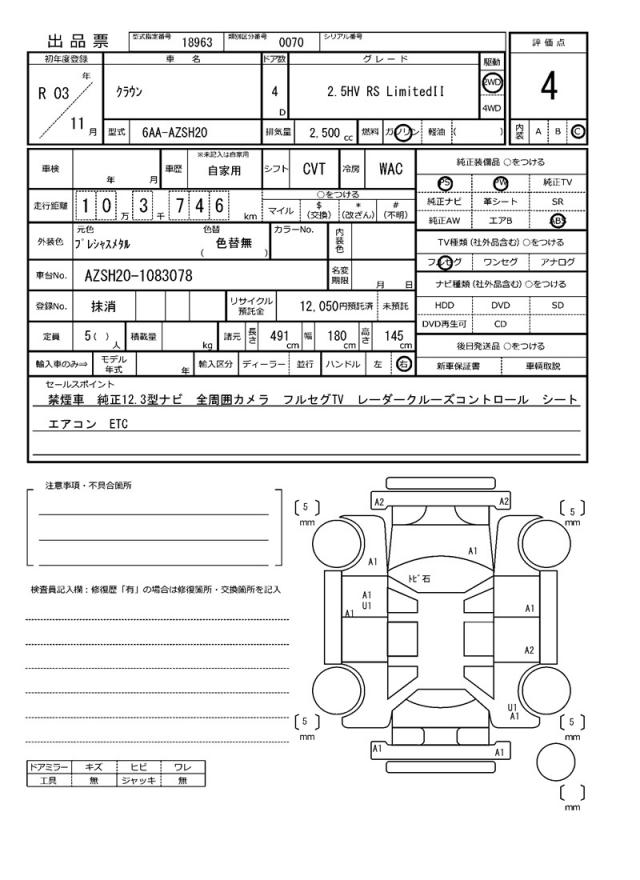 出品票 型式指定番号 18963 類別区分番号 0070 シリアル番号
初年度登録 車名 ドア数 グレード 駆動 評価点
R 03 年 11 月 クラウン 4 D 2.5HV RS LimitedII 2WD 4WD 4
型式 6AA-AZSH20 排気量 2,500 cc 燃料 ガソリン 軽油 ( ) 内装 A B C
車検 年 月 車歴 ※未記入は自家用 自家用 シフト CVT 冷房 WAC 純正装備品 ○をつける
PS PW 純正TV
走行距離 1 0 万 3 千 7 4 6 km ○をつける
マイル $(交換) *(改ざん) #(不明)
純正ナビ 革シート SR
純正AW エアB ABS
外装色 元色 プレシャスメタル 色替 ( 色替無 ) カラーNo. 内装色
TV種類 (社外品含む) ○をつける
フルセグ ワンセグ アナログ
車台No. AZSH20-1083078 名変期限 月 日
ナビ種類 (社外品含む) ○をつける
登録No. 抹消 リサイクル預託金 12,050円預託済 未預託
HDD DVD SD
DVD再生可 CD
定員 5( ) 人 積載量 kg 諸元 長さ 491 cm 幅 180 cm 高さ 145 cm
後日発送品 ○をつける
輸入車のみ⇒ モデル年式 年 輸入区分 ディーラー 並行 ハンドル 左 右 新車保証書 車輌取説
セールスポイント
禁煙車 純正12.3型ナビ 全周囲カメラ フルセグTV レーダークルーズコントロール シート
エアコン ETC
注意事項・不具合箇所
検査員記入欄:修復歴「有」の場合は修復箇所・交換箇所を記入
5 mm A2 A2 5 mm
A1 A1
トビ石
A1 U1 A1
A1
A2
U1 A1
5 mm 5 mm
A1 A1
mm
ドアミラー キズ ヒビ ワレ
工具 無 ジャッキ 無